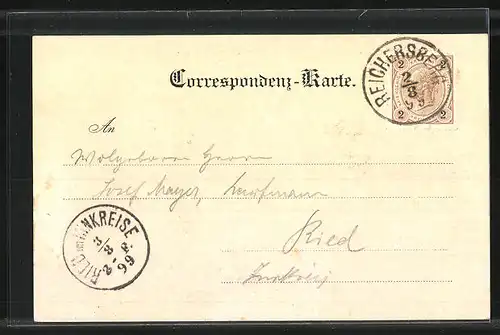 REICHERSBERG
2
2/8
99
2 2
Correspondenz-Karte.
An
Wolgeboren Herrn
Josef Mayer, Kaufmann
Ried
Innkreis
RIED INNKREISE
3/8
99